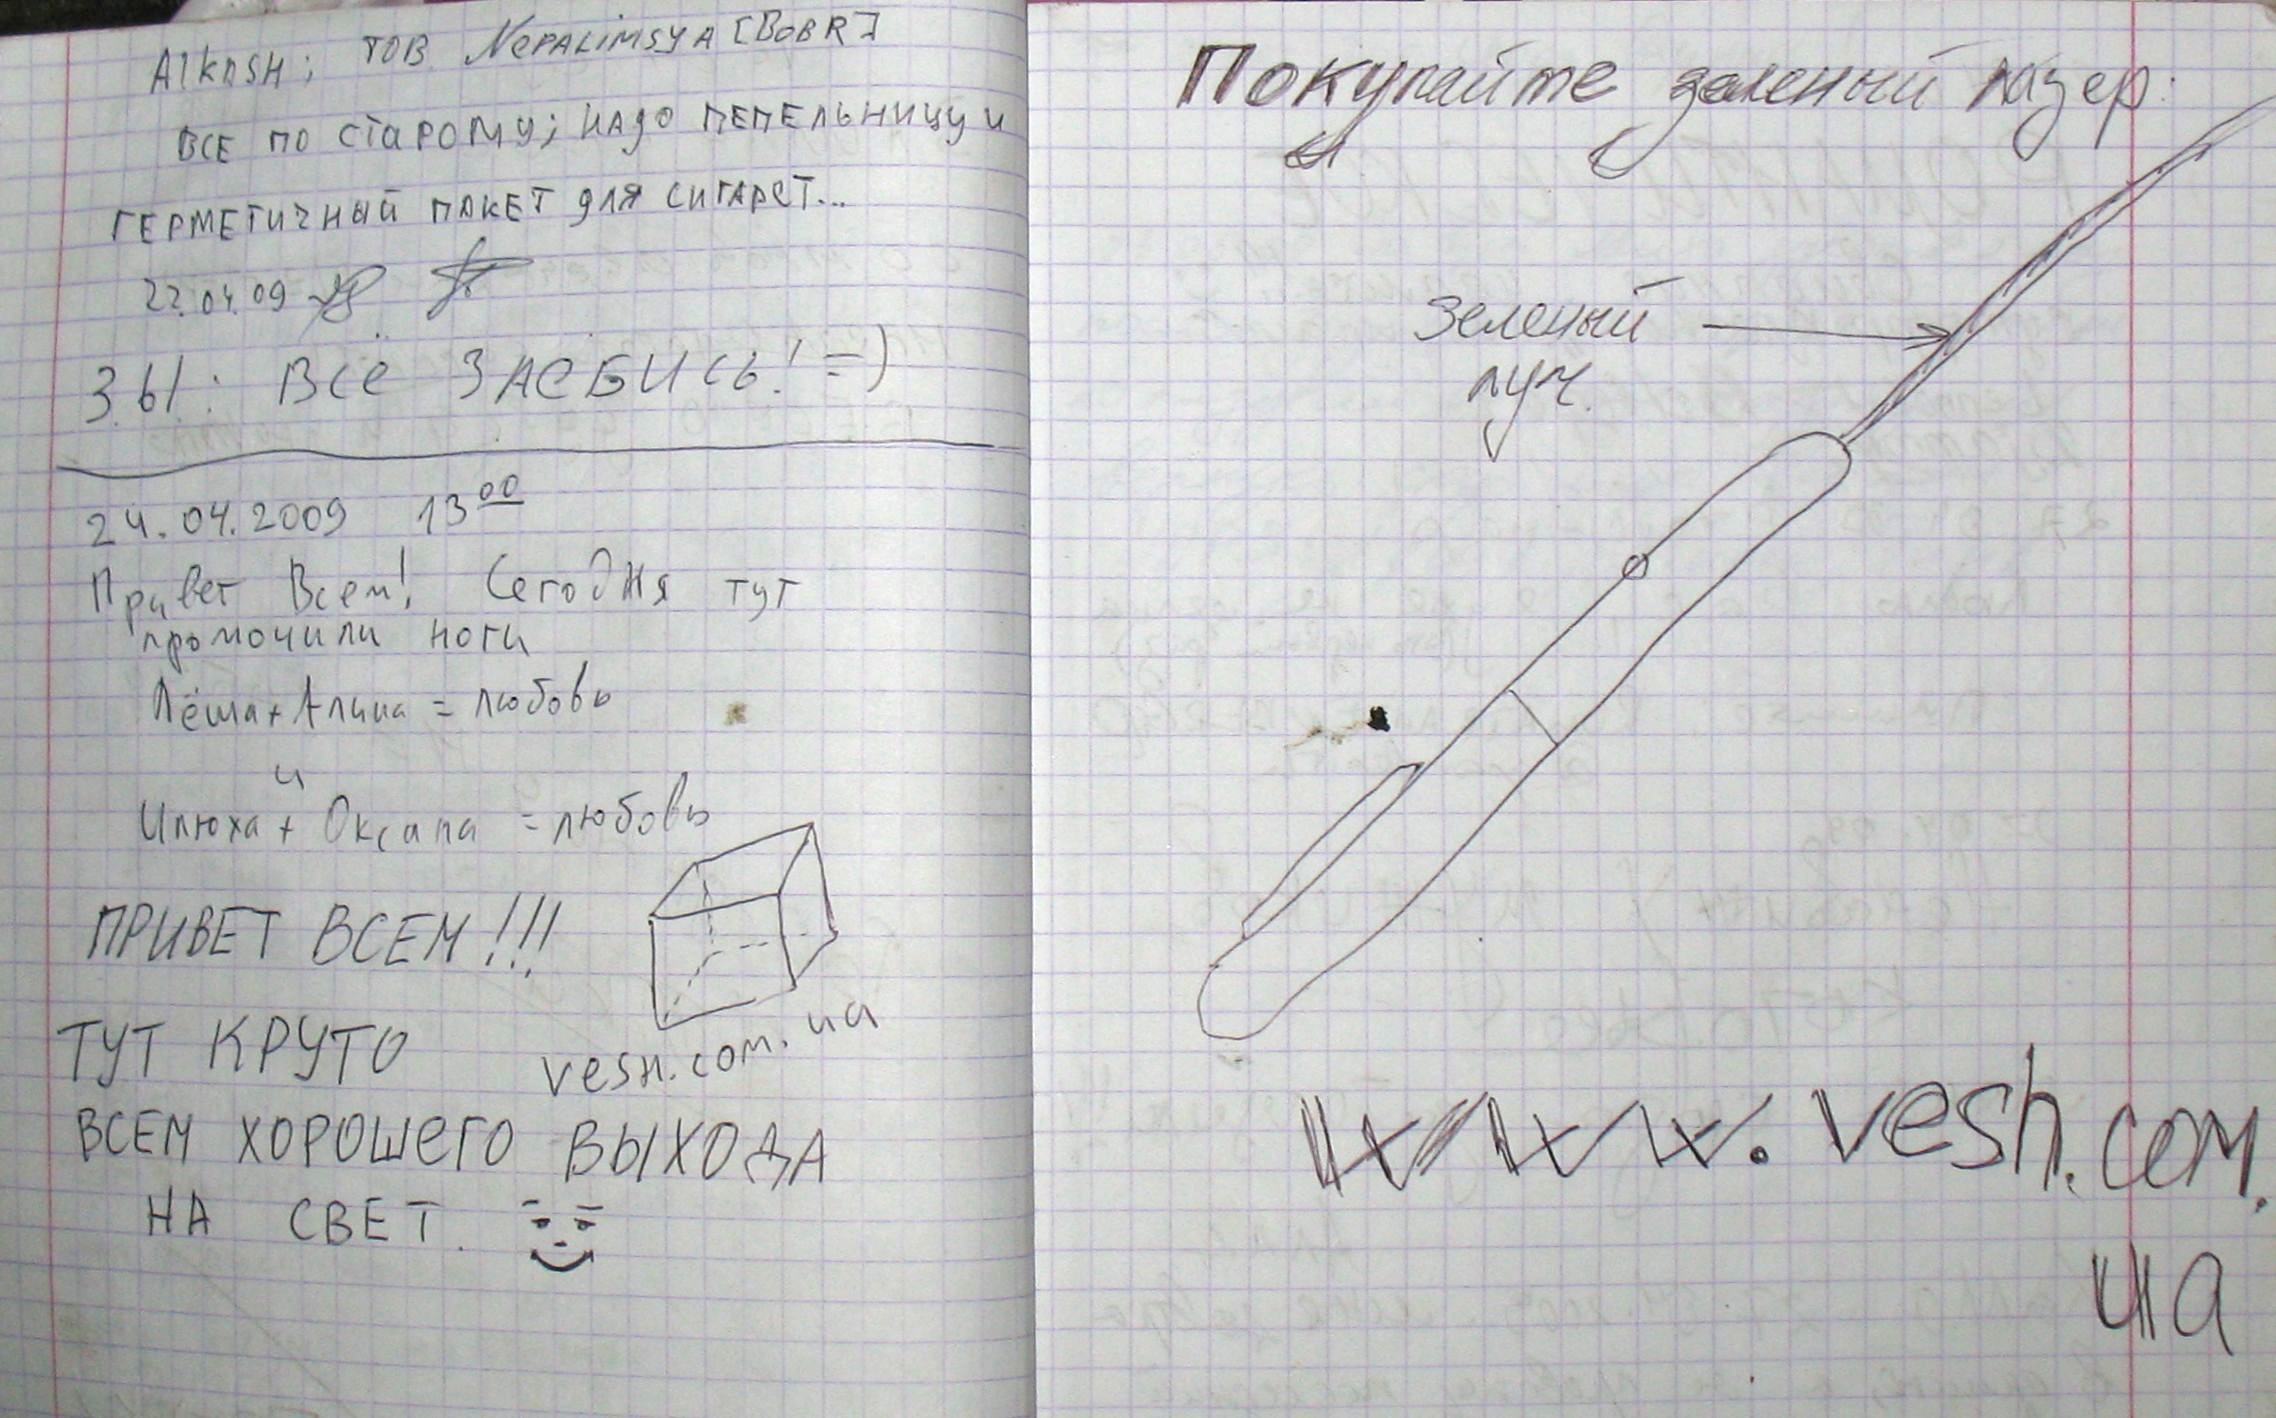 Alkash; ТОВ NePALiMSYA [BOBR]
ВСЕ ПО СТАРОМУ; НАДО ПЕПЕЛЬНИЦУ И
ГЕРМЕТИЧНЫЙ ПАКЕТ ДЛЯ СИГАРЕТ...
22.04.09
З.Ы.: ВСЁ ЗАЕБИСЬ! =)
24.04.2009 13 00
Привет Всем! Сегодня тут
промочили ноги
Лёша + Алина = любовь
и
Илюха + Оксана = любовь
ПРИВЕТ ВСЕМ!!!
ТУТ КРУТО
vesh.com.ua
ВСЕМ ХОРОШЕГО ВЫХОДА
НА СВЕТ.
Покупайте зеленый лазер:
Зеленый
луч.
www.vesh.com.
ua